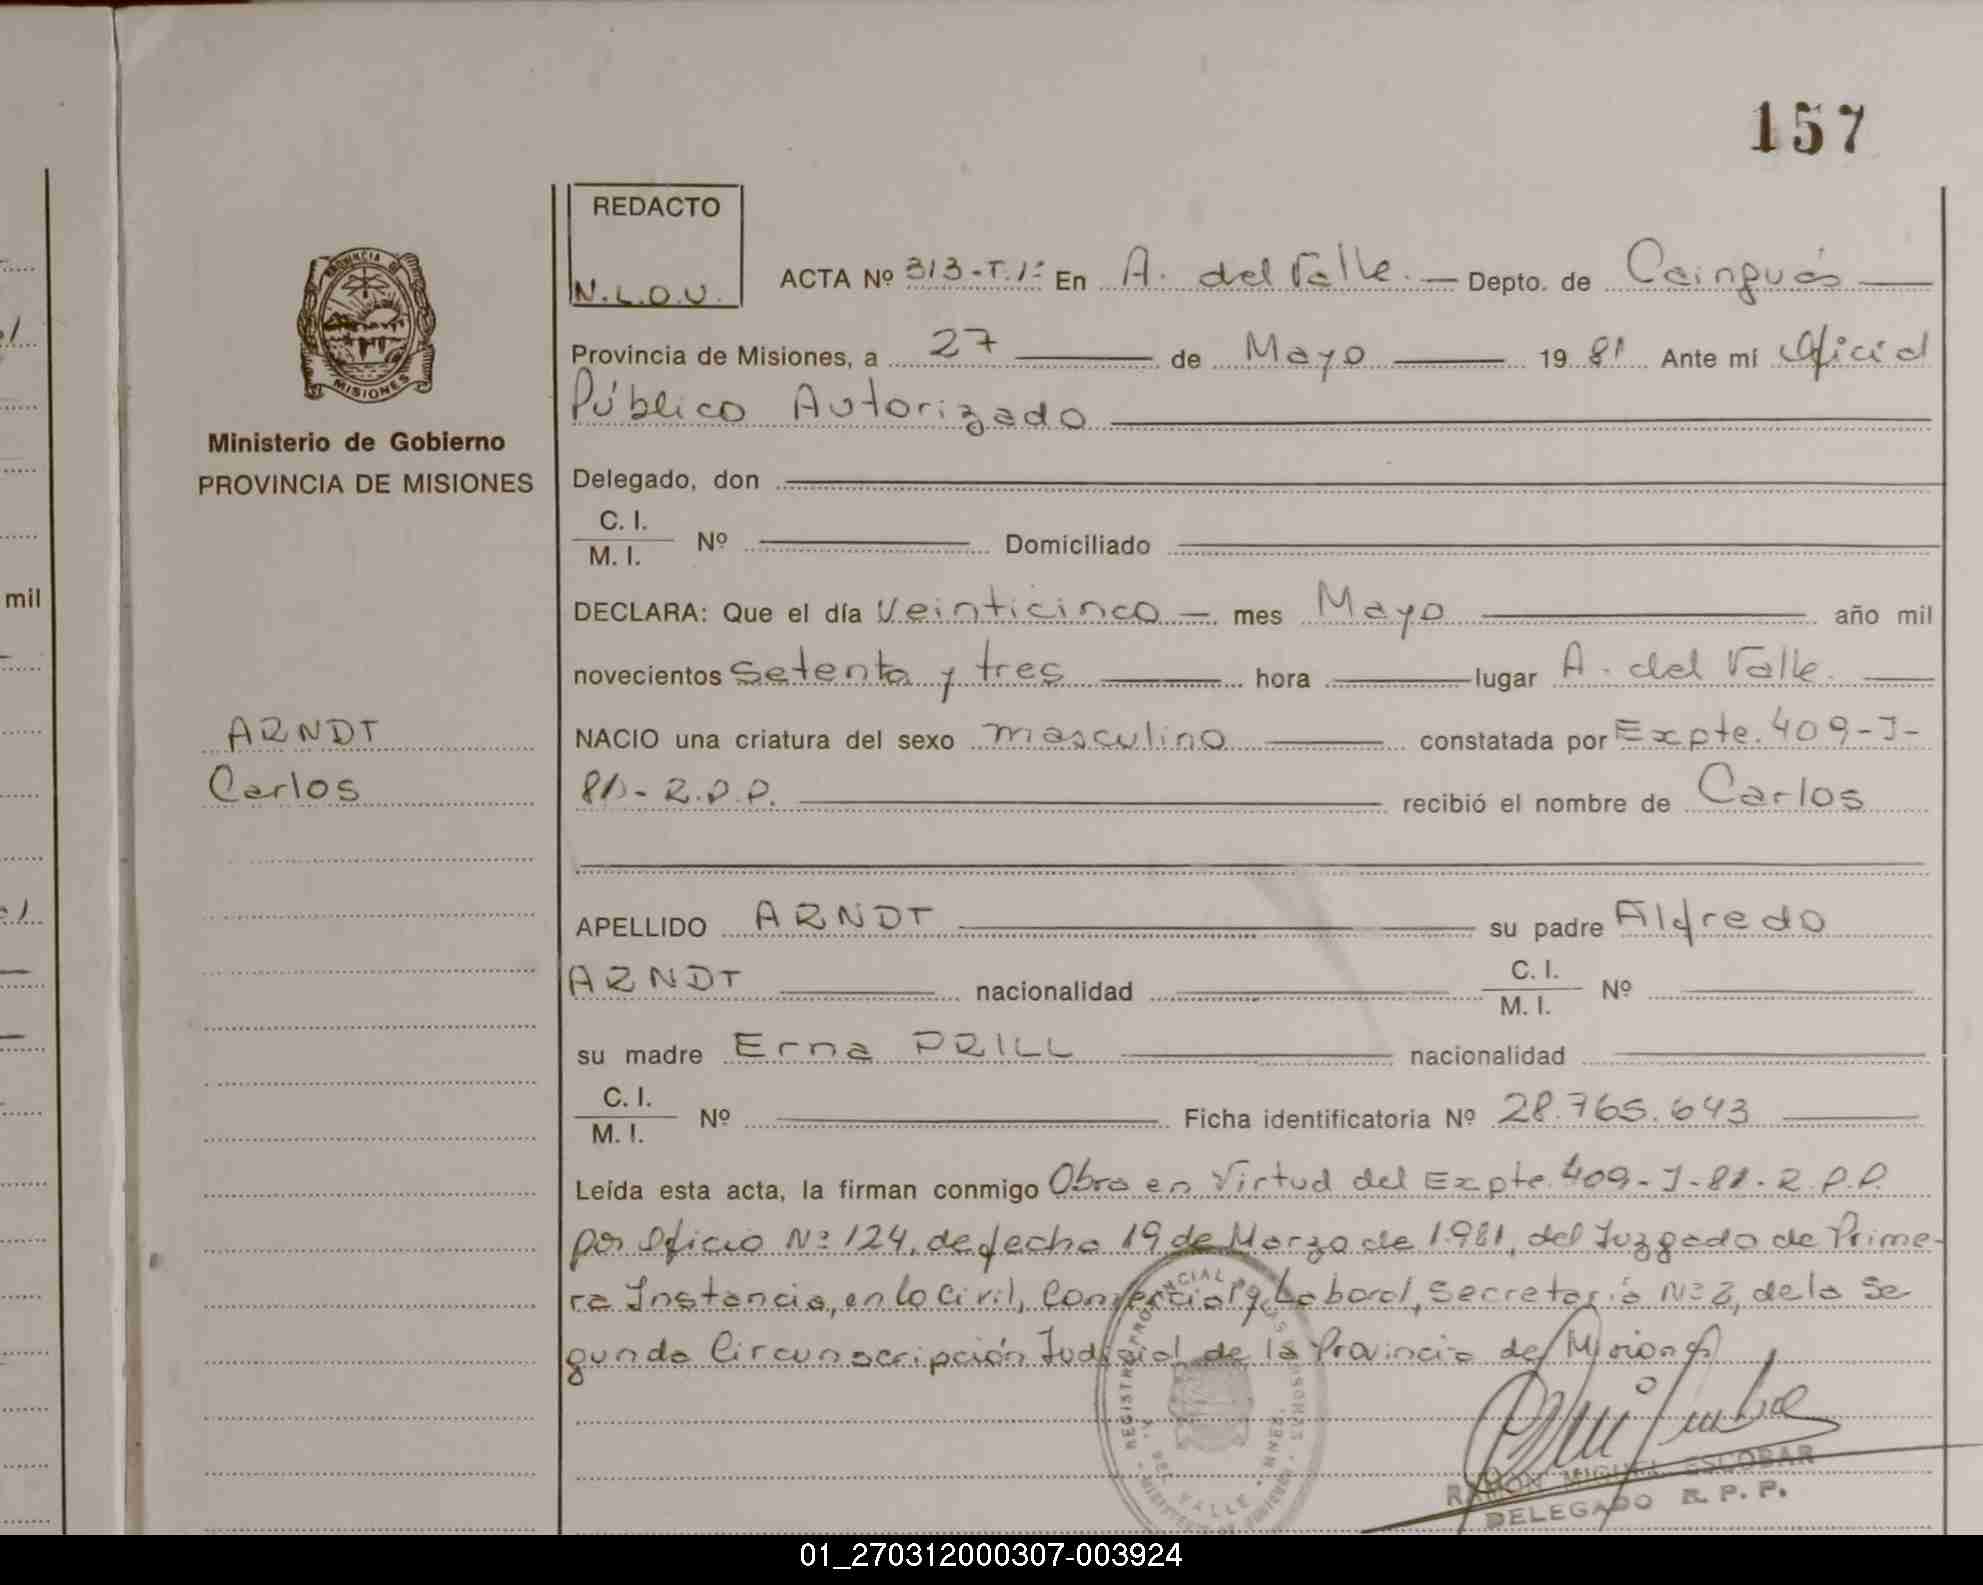 157
REDACTO
N.L.O.V.
ACTA Nº 313-T.1º En A. del Valle. Depto. de Cainguás
Provincia de Misiones, a 27 de Mayo 19 81 Ante mí Oficial
Público Autorizado
Ministerio de Gobierno
PROVINCIA DE MISIONES
Delegado, don
C. I.
M. I. Nº Domiciliado
mil
DECLARA: Que el día Veinticinco mes Mayo año mil
novecientos setenta y tres hora lugar A. del Valle.
ARNDT
Carlos
NACIO una criatura del sexo masculino constatada por Expte. 409-J-
81-R.P.P. recibió el nombre de Carlos
APELLIDO ARNDT su padre Alfredo
ARNDT nacionalidad C. I.
M. I. Nº
su madre Erna PRILL nacionalidad
C. I.
M. I. Nº Ficha identificatoria Nº 28.765.643
Leída esta acta, la firman conmigo Obra en Virtud del Expte. 409-J-81-R.P.P.
por Oficio Nº 124, de fecha 19 de Marzo de 1981, del Juzgado de Prime-
ra Instancia, en lo Civil, Comercial y Laboral, Secretaría Nº 2, de la Se
gunda Circunscripción Judicial de la Provincia de Misiones
REGISTRO PROVINCIAL DE LAS PERSONAS
A. DEL VALLE
RAMON MIGUEL ESCOBAR
DELEGADO R. P. P.
PROVINCIA DE
MISIONES
01_270312000307-003924